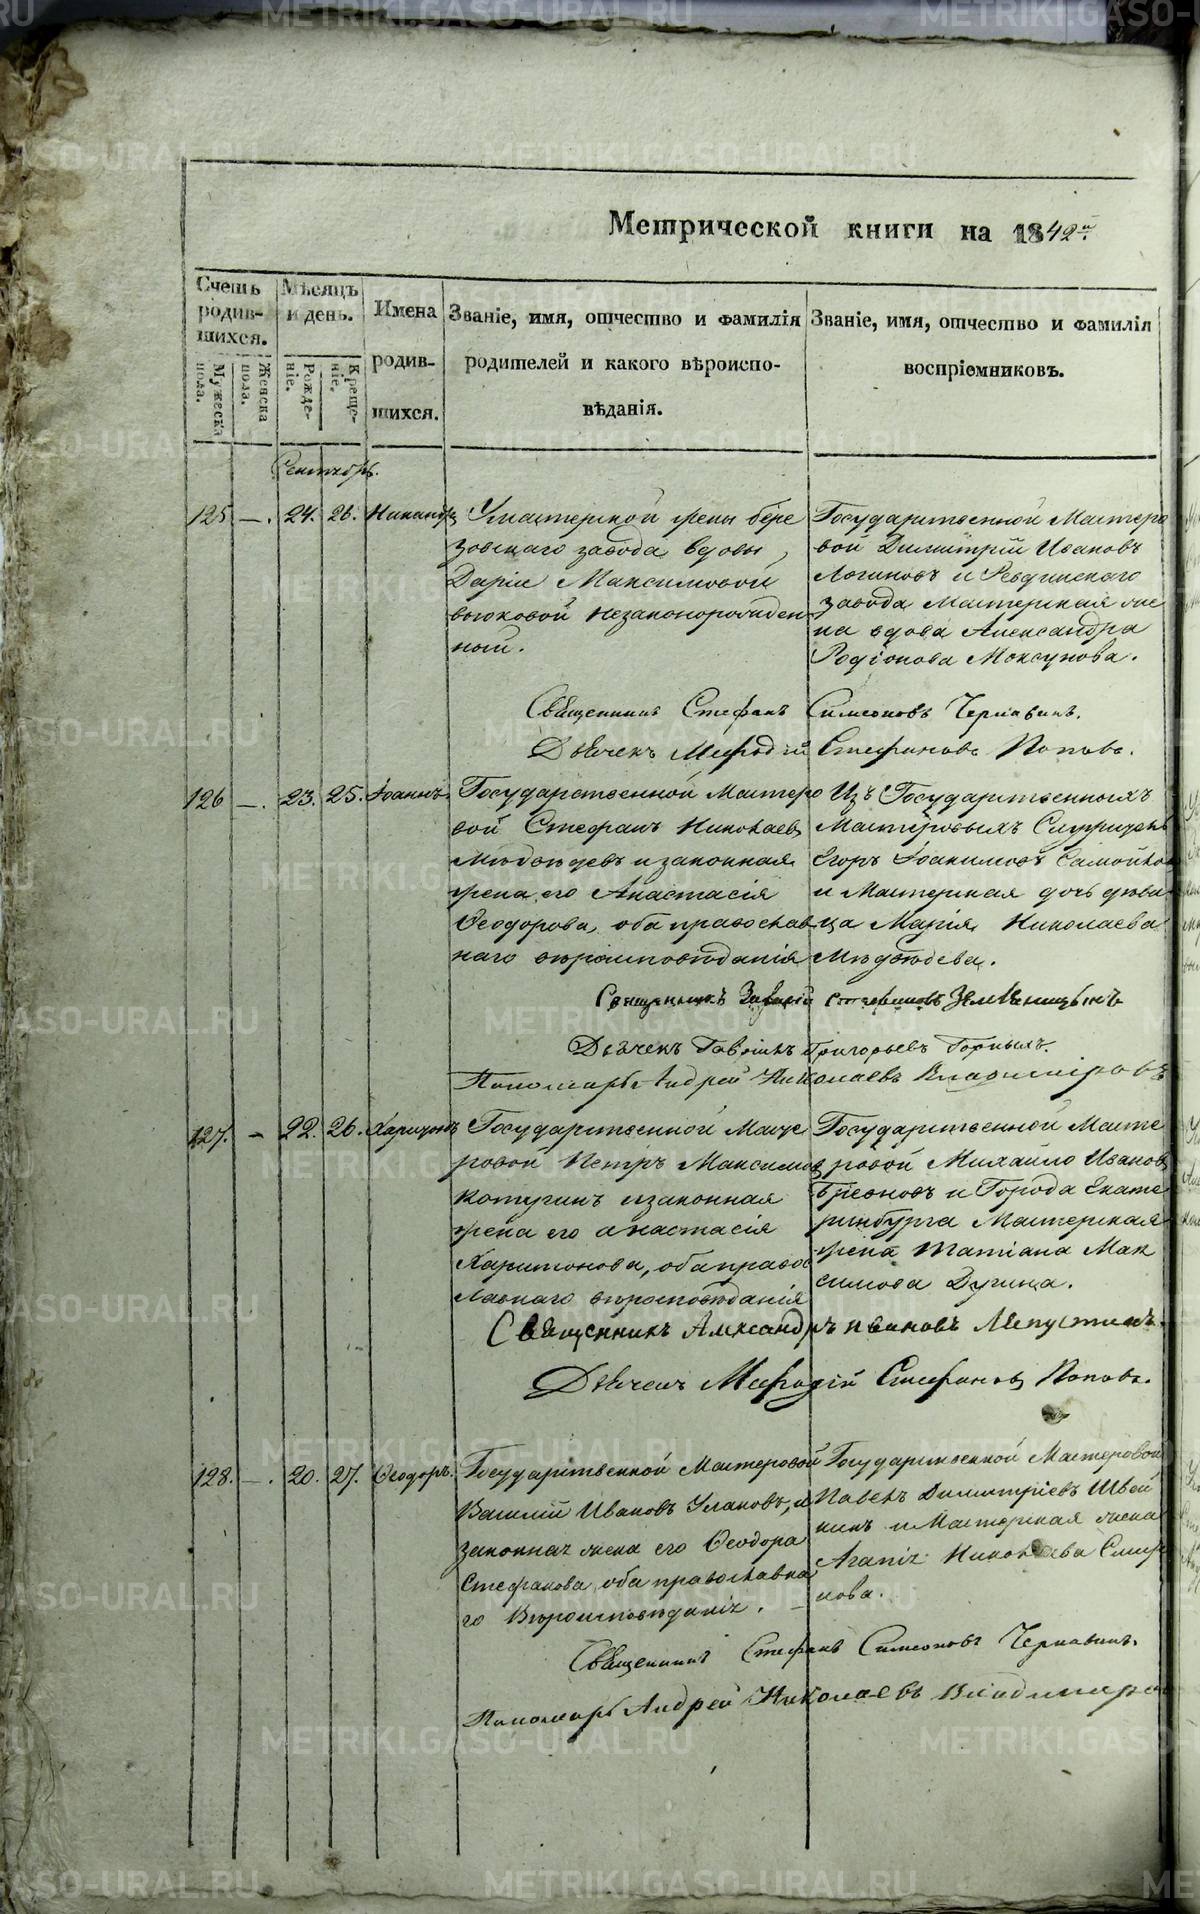 Метрической книги на 1842й
Счетъ родившихся.
Мужеска пола.
Женска пола.
Мѣсяцъ и день.
Рожденіе.
Крещеніе.
Имена родившихся.
Званіе, имя, отчество и фамилія родителей и какого вѣроисповѣданія.
Званіе, имя, отчество и фамилія воспріемниковъ.
Сентябрь.
125 — 24. 26. Никандръ
У мастерской жены Бере
зовскаго завода вдовы,
Даріи Максимовой
незаконорожден
ной.
Государственной Мастеро
вой Димитрій Ивановъ
Логиновъ и Ревдинскаго
завода Мастерская же
на вдова Александра
Родіонова Моксунова.
Священникъ Стефанъ Симеоновъ Чернавинъ.
Дьячекъ Мефодій Стефановъ Поповъ.
126 — 23. 25. Іоаннъ.
Государственной Мастеро
вой Стефанъ Николаевъ
Мѣдвѣдевъ и законная
жена его Анастасія
Ѳеодорова, оба православ
наго вѣроисповѣданія
Изъ Государственныхъ
Мастеровыхъ
Егоръ Іоакимовъ
и Мастерская дочь дѣви
ца Марія Николаева
Мѣдвѣдева.
Священникъ Стефановъ Землѣницынъ
Дьячекъ Гавріилъ Григорьевъ Горныхъ.
Пономарь Андрей Николаевъ Владиміровъ
127. — 22. 26. Харитонъ
Государственной Масте
ровой Петръ Максимовъ
Котугинъ и законная
жена его Анастасія
Харитонова, оба правос
лавнаго вѣроисповѣданія
Государственной Масте
ровой Михайло Ивановъ
и Города Екате
ринбурга Мастерская
жена Татіана Мак
симова Дугина.
Священникъ Александръ Ивановъ Лѣпустинъ.
Дьячекъ Мефодій Стефановъ Поповъ.
128. — 20. 27. Ѳеодоръ.
Государственной Мастеровой
Василій Ивановъ Улановъ, и
законная жена его Ѳеодора
Стефанова, оба православна
го Вѣроисповѣданія. —
Государственной Мастеровой
Павелъ Димитріевъ Швей
кинъ и Мастерская жена
Агапія Николаева Смир
нова.
Священникъ Стефанъ Симеоновъ Чернавинъ.
Пономарь Андрей Николаевъ Владимиро
METRIKI.GASO-URAL.RU